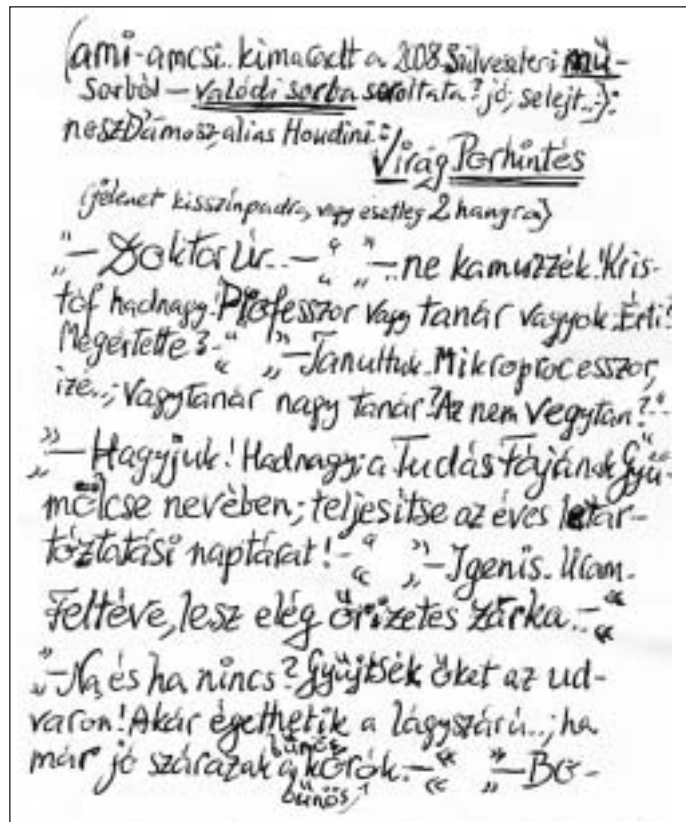 (ami-amcsi.. kimaradt a 2008. Szilveszteri mű-
sorból – valódi sorba soroltata? jó, selejt..:):
neszDámosz, alias Houdini.:
Virág Porhintés
(jelenet kisszínpadra, vagy esetleg 2 hangra)
„–Doktor Úr..–“ „–..ne kamuzzék! Kris-
tóf hadnagy! Professzor vagy tanár vagyok. Érti?
Megértette?–“ „–Tanultuk. Mikroprocesszor,
izé..; vagytanár nagy tanár? Az nem vegytan?–“
„–Hagyjuk! Hadnagy: a Tudás Fájának Gyü-
mölcse nevében; teljesítse az éves letar-
tóztatási naptárat!–“ „–Igenis. Uram.
Feltéve, lesz elég őrizetes zárka.–“
„–Na és ha nincs? Gyűjtsék őket az ud-
varon! Akár égethetik a lágyszárú..; ha
már jó szárazak a kórók.–“ „–Bo-
bűnös
bűnös